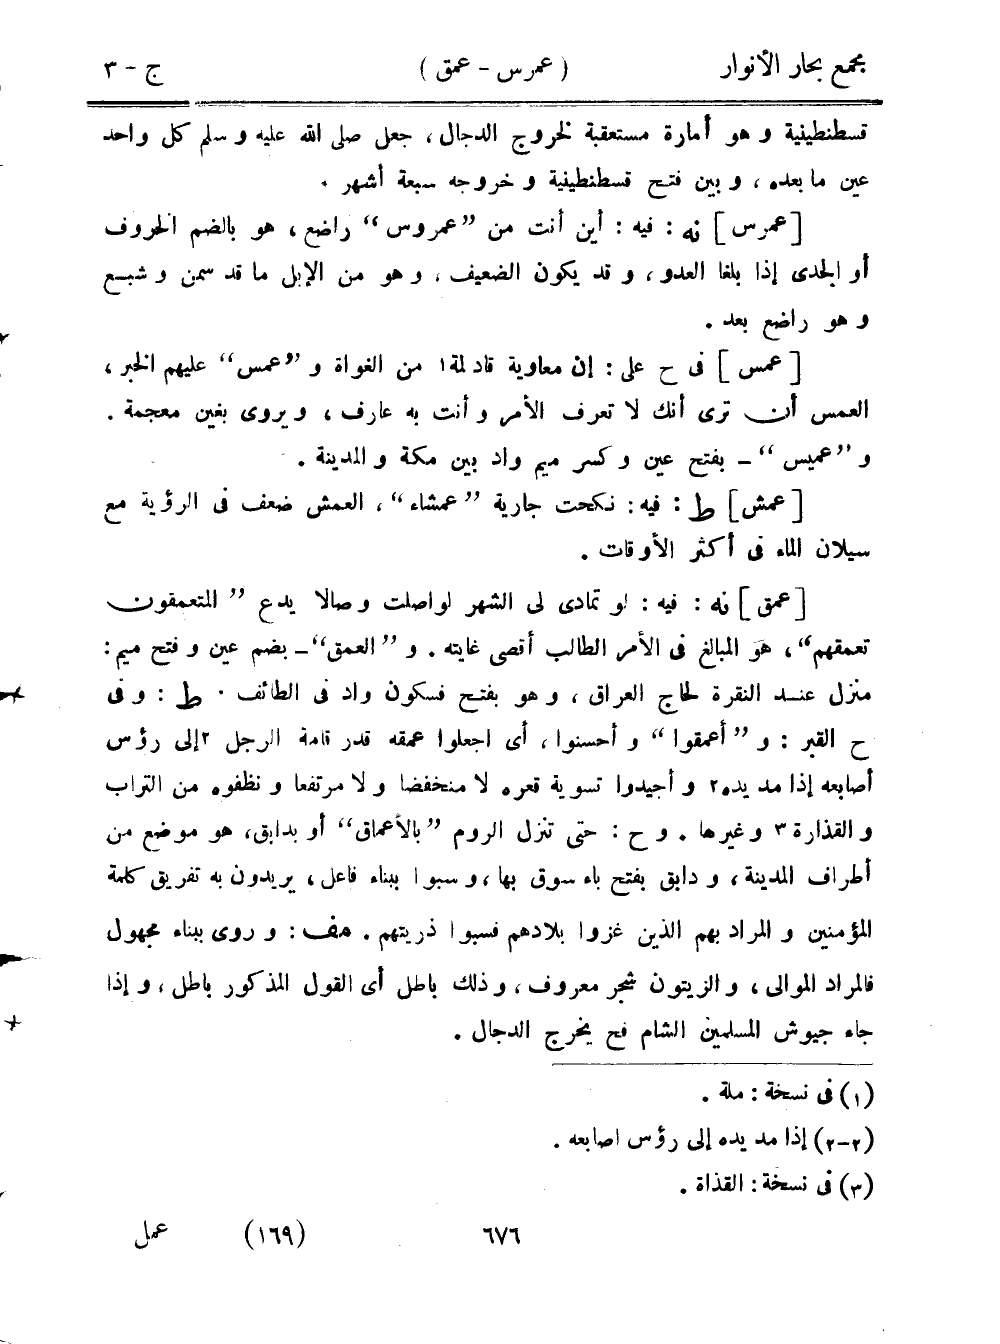 مجمع بحار الأنوار ( عمرس - عمق ) ج - ٣
قسطنطينية و هو أمارة مستعقبة لخروج الدجال، جعل صلى الله عليه و سلم كل واحد
عين ما بعده، و بين فتح قسطنطينية و خروجه سبعة أشهر ٠
[عمرس] نه : فيه : أين أنت من ”عمروس“ راضع، هو بالضم الخروف
أو الجدى إذا بلغا العدو، و قد يكون الضعيف، و هو من الإبل ما قد سمن و شبع
و هو راضع بعد .
[عمس] فى ح على : إن معاوية قاد لمة١ من الغواة و ”عمس“ عليهم الخبر،
العمس أن ترى أنك لا تعرف الأمر و أنت به عارف، و يروى بغين معجمة .
و ”عميس“ – بفتح عين و كسر ميم واد بين مكة و المدينة .
[عمش] ط : فيه : نكحت جارية ”عمشاء“، العمش ضعف فى الرؤية مع
سيلان الماء فى أكثر الأوقات .
[عمق] نه : فيه : لو تمادى لى الشهر لواصلت وصالا يدع ” المتعمقون
تعمقهم“، هو المبالغ فى الأمر الطالب أقصى غايته . و ”العمق“– بضم عين و فتح ميم :
منزل عند النقرة لحاج العراق، و هو بفتح فسكون واد فى الطائف ٠ ط : و فى
ح القبر : و ”أعمقوا“ و أحسنوا، أى اجعلوا عمقه قدر قامة الرجل ٢إلى رؤس
أصابعه إذا مد يده٢ و أجيدوا تسوية قعره لا منخفضا و لا مرتفعا و نظفوه من التراب
و القذارة ٣ و غيرها . و ح : حتى تنزل الروم ”بالأعماق“ أو بدابق، هو موضع من
أطراف المدينة، و دابق بفتح باء سوق بها، و سبوا ببناء فاعل، يريدون به تفريق كلمة
المؤمنين و المراد بهم الذين غزوا بلادهم فسبوا ذريتهم . مف : و روى ببناء مجهول
فالمراد الموالى، و الزيتون شجر معروف، و ذلك باطل أى القول المذكور باطل، و إذا
جاء جيوش المسلمين الشام فح يخرج الدجال .
(١) فى نسخة : ملة .
(٢–٢) إذا مد يده إلى رؤس اصابعه .
(٣) فى نسخة : القذاة .
٦٧٦ (١٦٩) عمل